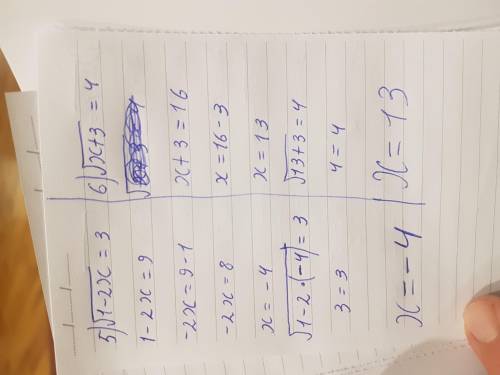 5) √1-2x = 3
1-2x = 9
-2x = 9-1
-2x = 8
x = -4
√1-2·(-4) = 3
3 = 3
x = -4
6) √x+3 = 4
x+3 = 16
x = 16-3
x = 13
√13+3 = 4
4 = 4
x = 13